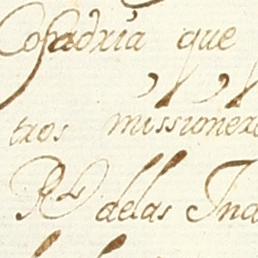 Cofadria que
tros missionero
Rl delas Ind